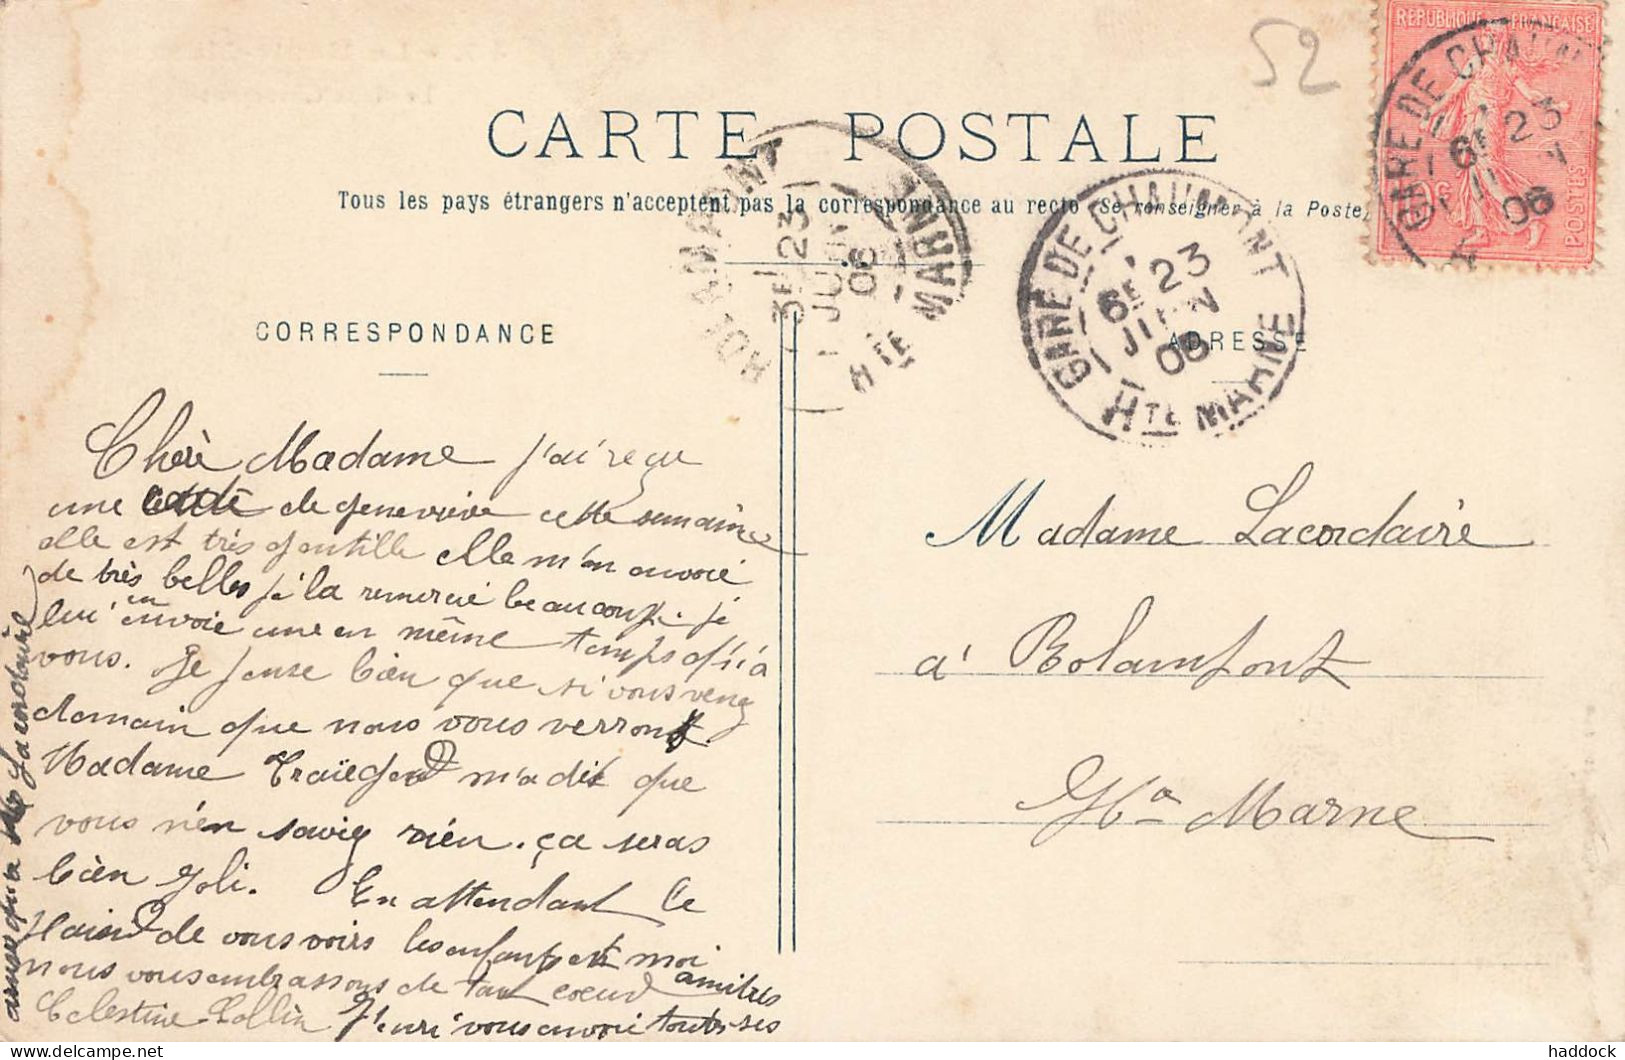 52
RÉPUBLIQUE FRANÇAISE
POSTES
GARE DE CHAUMONT
6E 23
JUIN
06
CARTE POSTALE
Tous les pays étrangers n'acceptent pas la correspondance au recto (Se renseigner à la Poste)
ROLAMPONT
3E 23
JUIN
06
HTE MARNE
GARE DE CHAUMONT
6E 23
JUIN
06
HTE MARNE
CORRESPONDANCE
ADRESSE
Chère Madame j'ai reçu
une de genevieve cette semaine
elle est très gentille elle m'en envoie
de très belles je la remercie beaucoup. je
lui en envoie une en même temps qu'à
vous. Je pense bien que si vous venez
demain que nous vous verrons
Madame m'a dit que
vous n'en saviez rien. ça seras
bien joli. En attendant le
plaisir de vous voirs les enfants et moi
nous vous embrassons de tout coeur
Celestine Collin Henri vous envoie toutes ses amitiés
ainsi qu'a Mr Lacordaire
Madame Lacordaire
à Rolampont
Hte Marne
haddock